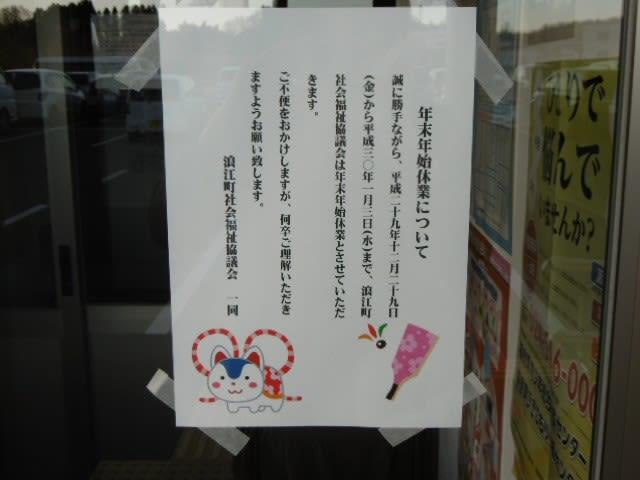 年末年始休業について
誠に勝手ながら、平成二十九年十二月二十九日
(金)から平成三〇年一月三日(水)まで、浪江町
社会福祉協議会は年末年始休業とさせていただ
きます。
ご不便をおかけしますが、何卒ご理解いただき
ますようお願い致します。
浪江町社会福祉協議会　一同
ひとりで
悩んで
いませんか?